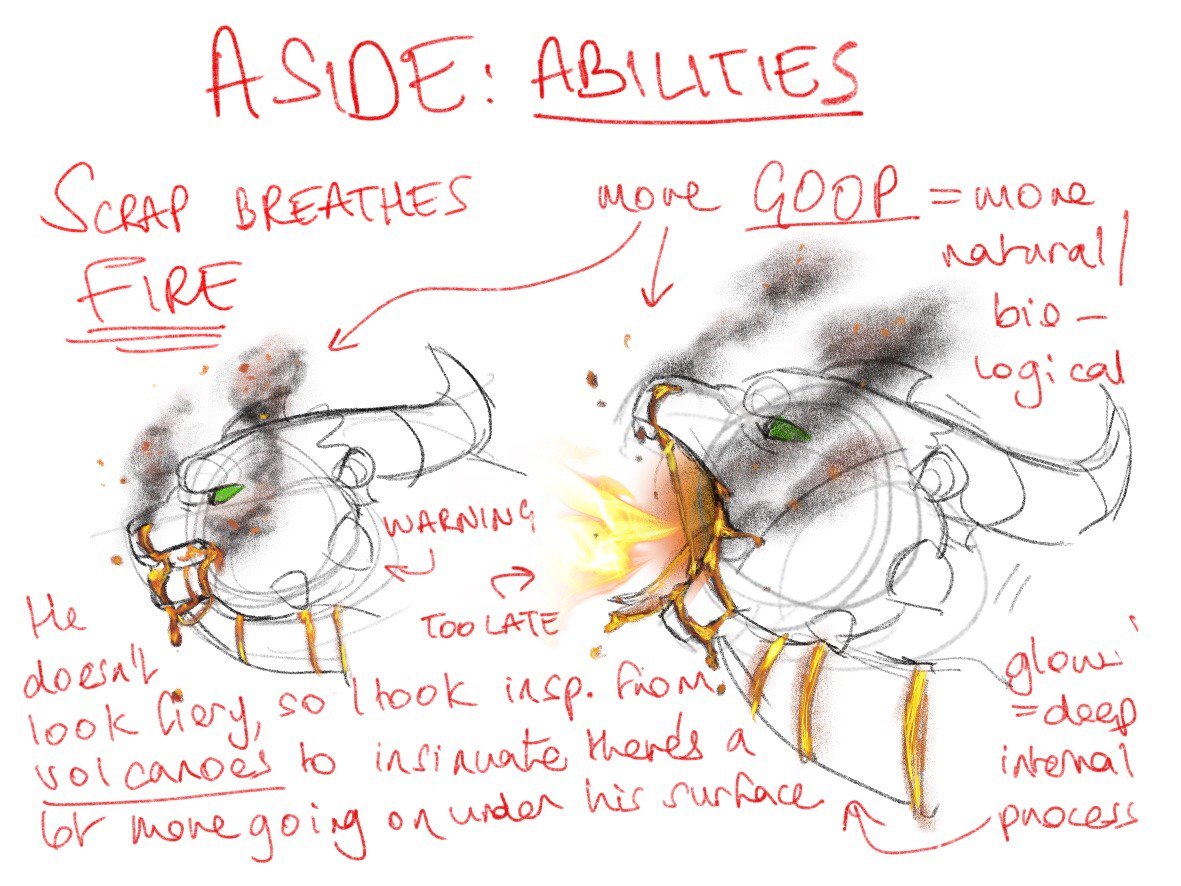 ASIDE: ABILITIES
SCRAP BREATHES
FIRE
more GOOP = more
natural/
bio-
logical
WARNING
TOO LATE
He
doesn't
look fiery, so I took insp. from
volcanoes to insinuate there's a
lot more going on under his surface
glow
=deep
internal
process